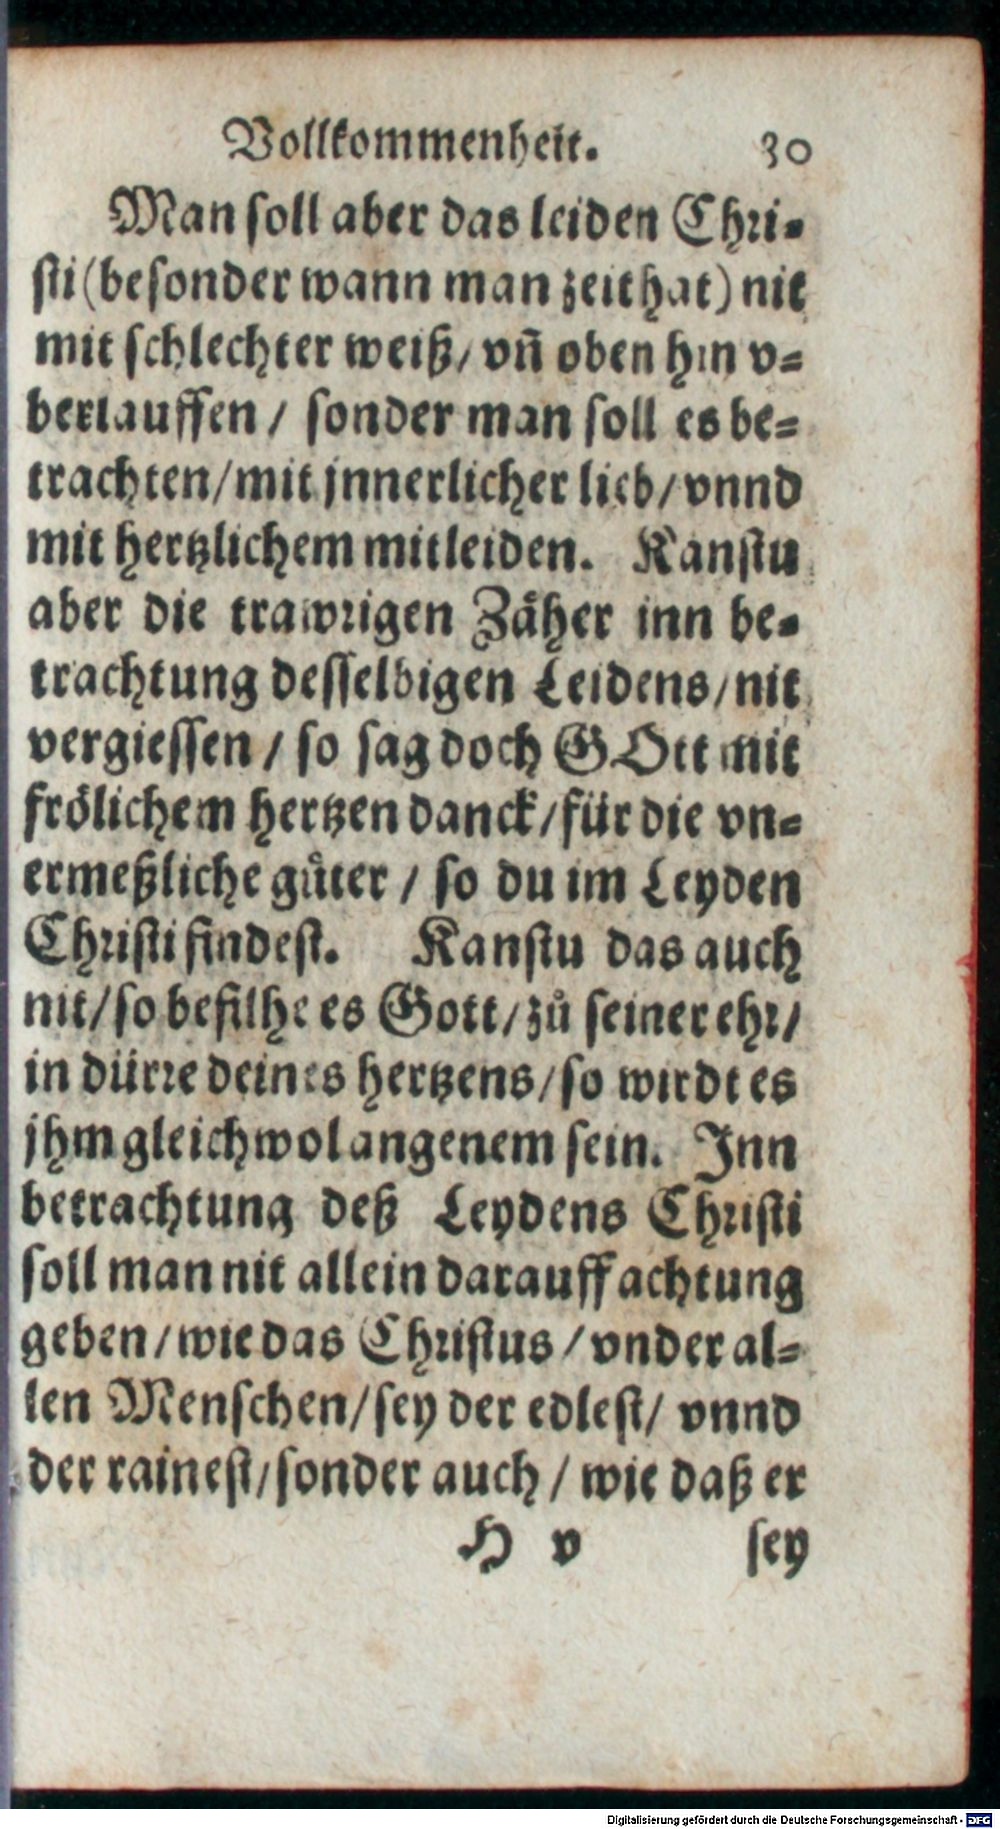 Vollkommenheit. 30
Man soll aber das leiden Chri-
sti (besonder wann man zeit hat) nit
mit schlechter weiß / vñ oben hin v-
berlauffen / sonder man soll es be-
trachten / mit jnnerlicher lieb / vnnd
mit hertzlichem mitleiden. Kanstu
aber die trawrigen Zäher inn be-
trachtung desselbigen Leidens / nit
vergiessen / so sag doch GOtt mit
frölichem hertzen danck / für die vn-
ermeßliche guͤter / so du im Leyden
Christi findest. Kanstu das auch
nit / so befilhe es Gott / zů seiner ehr /
in dürre deines hertzens / so wirdt es
jhm gleichwol angenem sein. Inn
betrachtung deß Leydens Christi
soll man nit allein darauff achtung
geben / wie das Christus / vnder al-
len Menschen / sey der edlest / vnnd
der rainest / sonder auch / wie daß er
H v sey
Digitalisierung gefördert durch die Deutsche Forschungsgemeinschaft - DFG